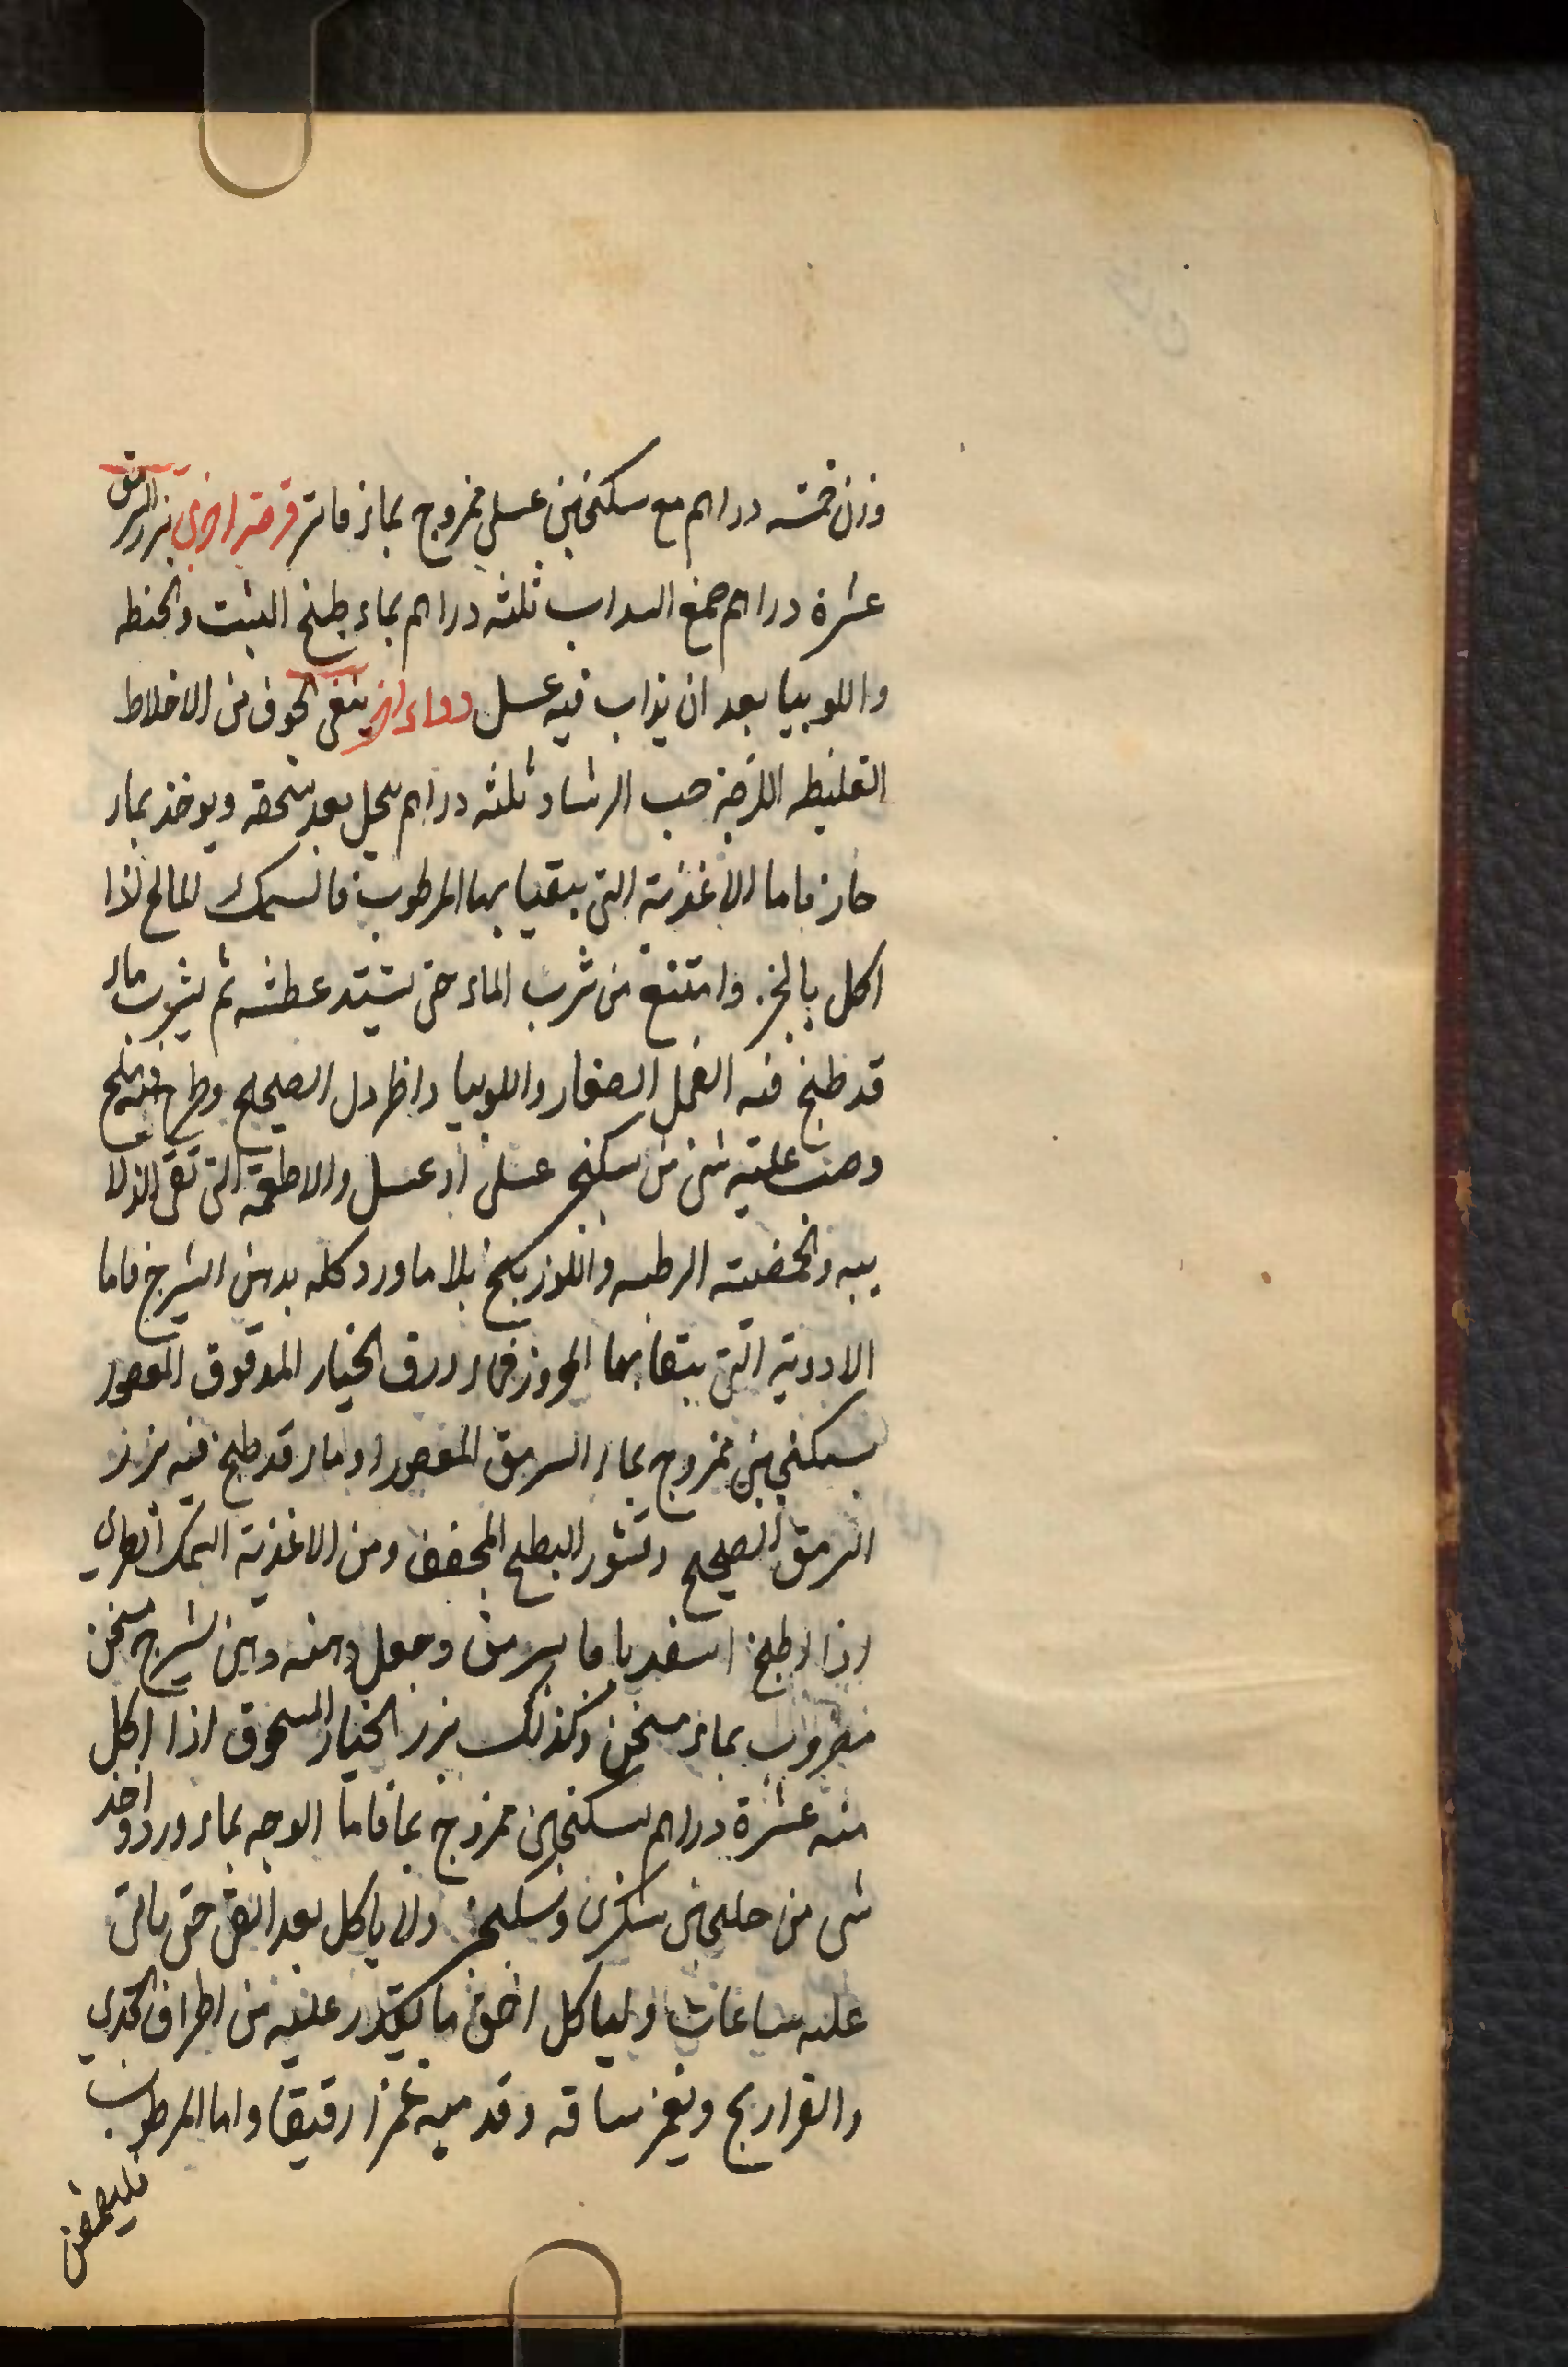 وزن خمسه دراهم مع سكنجبين عسلي ممزوج بماء فاتر قرصة اخرى بزر السرمق
عشرة دراهم صمغ السداب ثلثه دراهم بماء طبخ الشبت والحنطه
واللوبيا بعد ان يذاب فيه عسل دواء اخر ينقى الجوف من الاخلاط
الغليظه اللزجة حب الرشاد ثلثه دراهم ينخل بعد سحقه ويوخذ بماء
حار فاما الاغذية التى يتقيا بها المرطوب فالسمك المالح اذا
اكل بالخبز وامتنع من شرب الماء حتى يشتد عطشه ثم يشرب ماء
قد طبخ فيه الفجل الصغار واللوبيا والخردل الصحيح وطرح فيه ملح
وصب عليه شى من سكنجبين عسلى او عسل والاطعمة التى تقى الزلا
بيه والخفيته الرطبه واللوزينج بلا ماورد كله بدهن الشيرج فاما
الادوية التى يتقا بها المحرور فماء ورق الخيار المدقوق المعصور
بسكنجبين ممزوج بماء السرمق المعصور او ماء قد طبخ فيه بزر
السرمق الصحيح وقشور البطيخ المجفف ومن الاغذية السمك الطرى
اذا طبخ اسفدباجا بسرمق وجعل دهنه دهن شيرج مسخن
مضروب بماء مسخن وكذلك بزر الخيار المسحوق اذا اكل
منه عشرة دراهم بسكنجبين ممزوج بما فاما الوجه بماء ورد واخذ
شى من جلنجبين سكرى وسكنجبين ولا ياكل بعد القى حتى ياتى
عليه ساعات وليا كل اخف ما يقتدر عليه من اطراف الجدي
والفراريج ويغمز ساقه وقدميه غمزا رقيقا واما المرطوب
فليمضمض